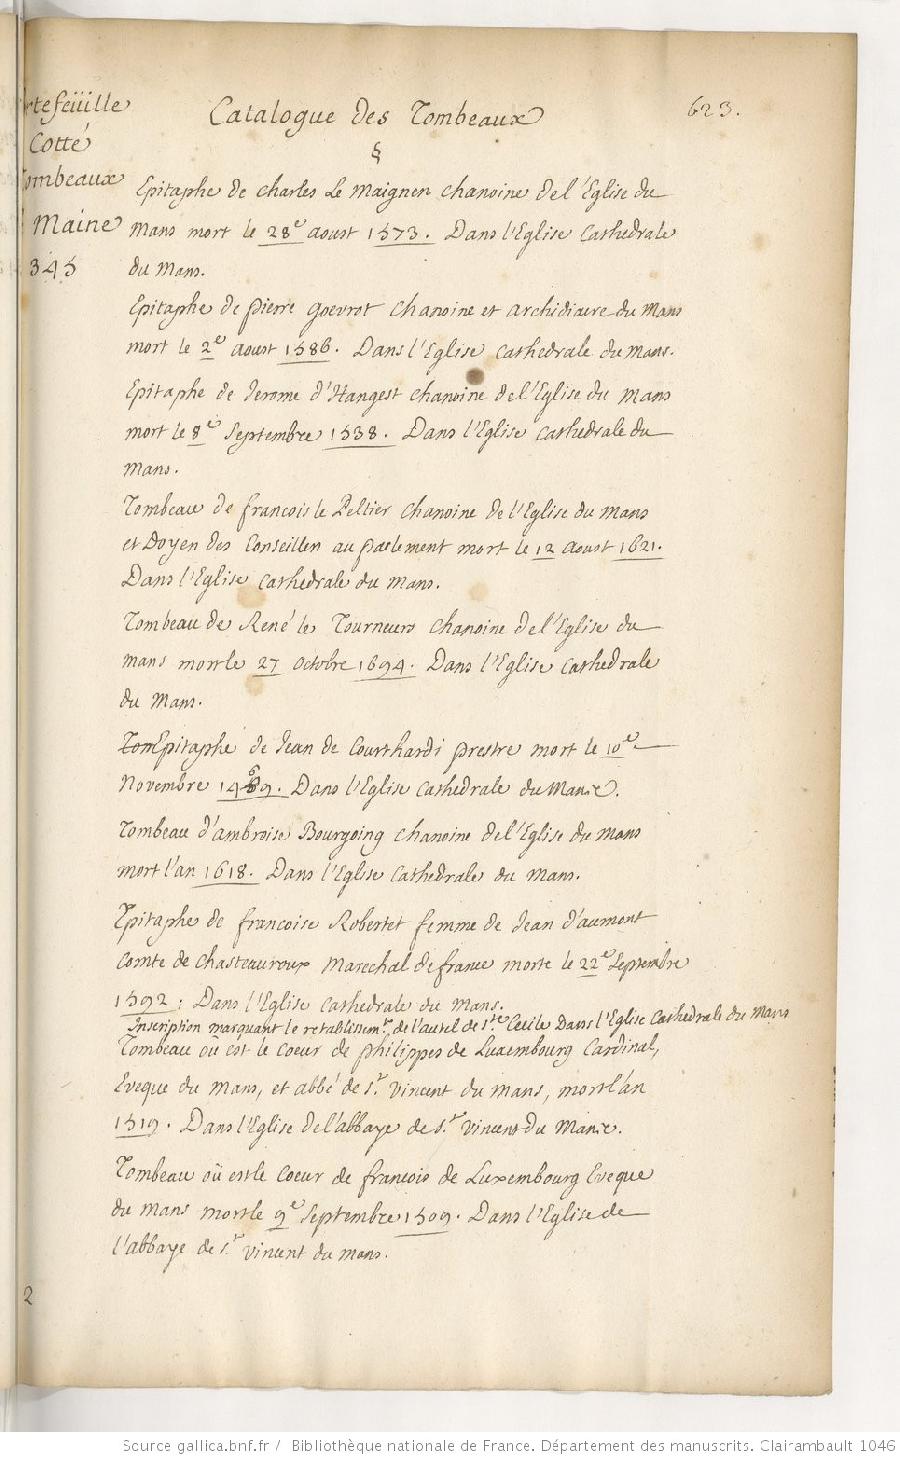 rtefeüille
Cotté
Tombeaux
Maine
345
Catalogue des Tombeaux
623.
§
Epitaphe de Charles Le Maignen chanoine de l'Eglise du
Mans mort le 28e aoust 1573. Dans l'Eglise Cathedrale
du Mans.
Epitaphe de pierre goevrot chanoine et archidiacre du Mans
mort le 2e aoust 1586. Dans l'Eglise cathedrale du Mans.
Epitaphe de Jerome d'Hangest chanoine de l'Eglise du Mans
mort le 8e Septembre 1538. Dans l'Eglise cathedrale du
Mans.
Tombeau de francois le Peltier chanoine de l'Eglise du Mans
et Doyen des Conseillers au parlement mort le 12 aoust 1621.
Dans l'Eglise cathedrale du Mans.
Tombeau de René le Tourneurs chanoine de l'Eglise du
Mans mort le 27 octobre 1694. Dans l'Eglise cathedrale
du Mans.
Epitaphe de Jean de Courthardi prestre mort le 10e
Novembre 1469. Dans l'Eglise Cathedrale du Mans.
Tombeau d'ambroise Bourgoing chanoine de l'Eglise du Mans
mort l'an 1618. Dans l'Eglise cathedrale du Mans.
Epitaphe de francoise Robertet femme de Jean d'aumont
Comte de Chasteauroux Marechal de france morte le 22e Septembre
1592: Dans l'Eglise cathedrale du Mans.
Inscription marquant le retablissemt. de l'autel de ste. Cecile Dans l'Eglise Cathedrale du Mans
Tombeau où est le coeur de philippes de Luxembourg Cardinal,
Eveque du Mans, et abbé de st. Vincent du Mans, mort l'an
1519. Dans l'Eglise de l'abbaye de st. Vincent du Mans.
Tombeau où est le Coeur de francois de Luxembourg Eveque
du Mans mort le 9e Septembre 1509. Dans l'Eglise de
l'abbaye de st. Vincent du Mans.
2
Source gallica.bnf.fr / Bibliothèque nationale de France. Département des manuscrits. Clairambault 1046